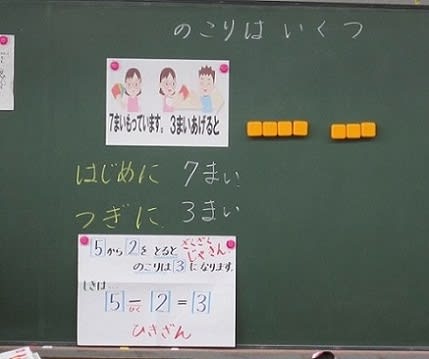 のこりは いくつ
7まいもっています。3まいあげると
はじめに 7まい
つぎに 3まい
5から2を とると
のこりは 3 になります。
しきは
5－2＝3
ひく
ひきざん